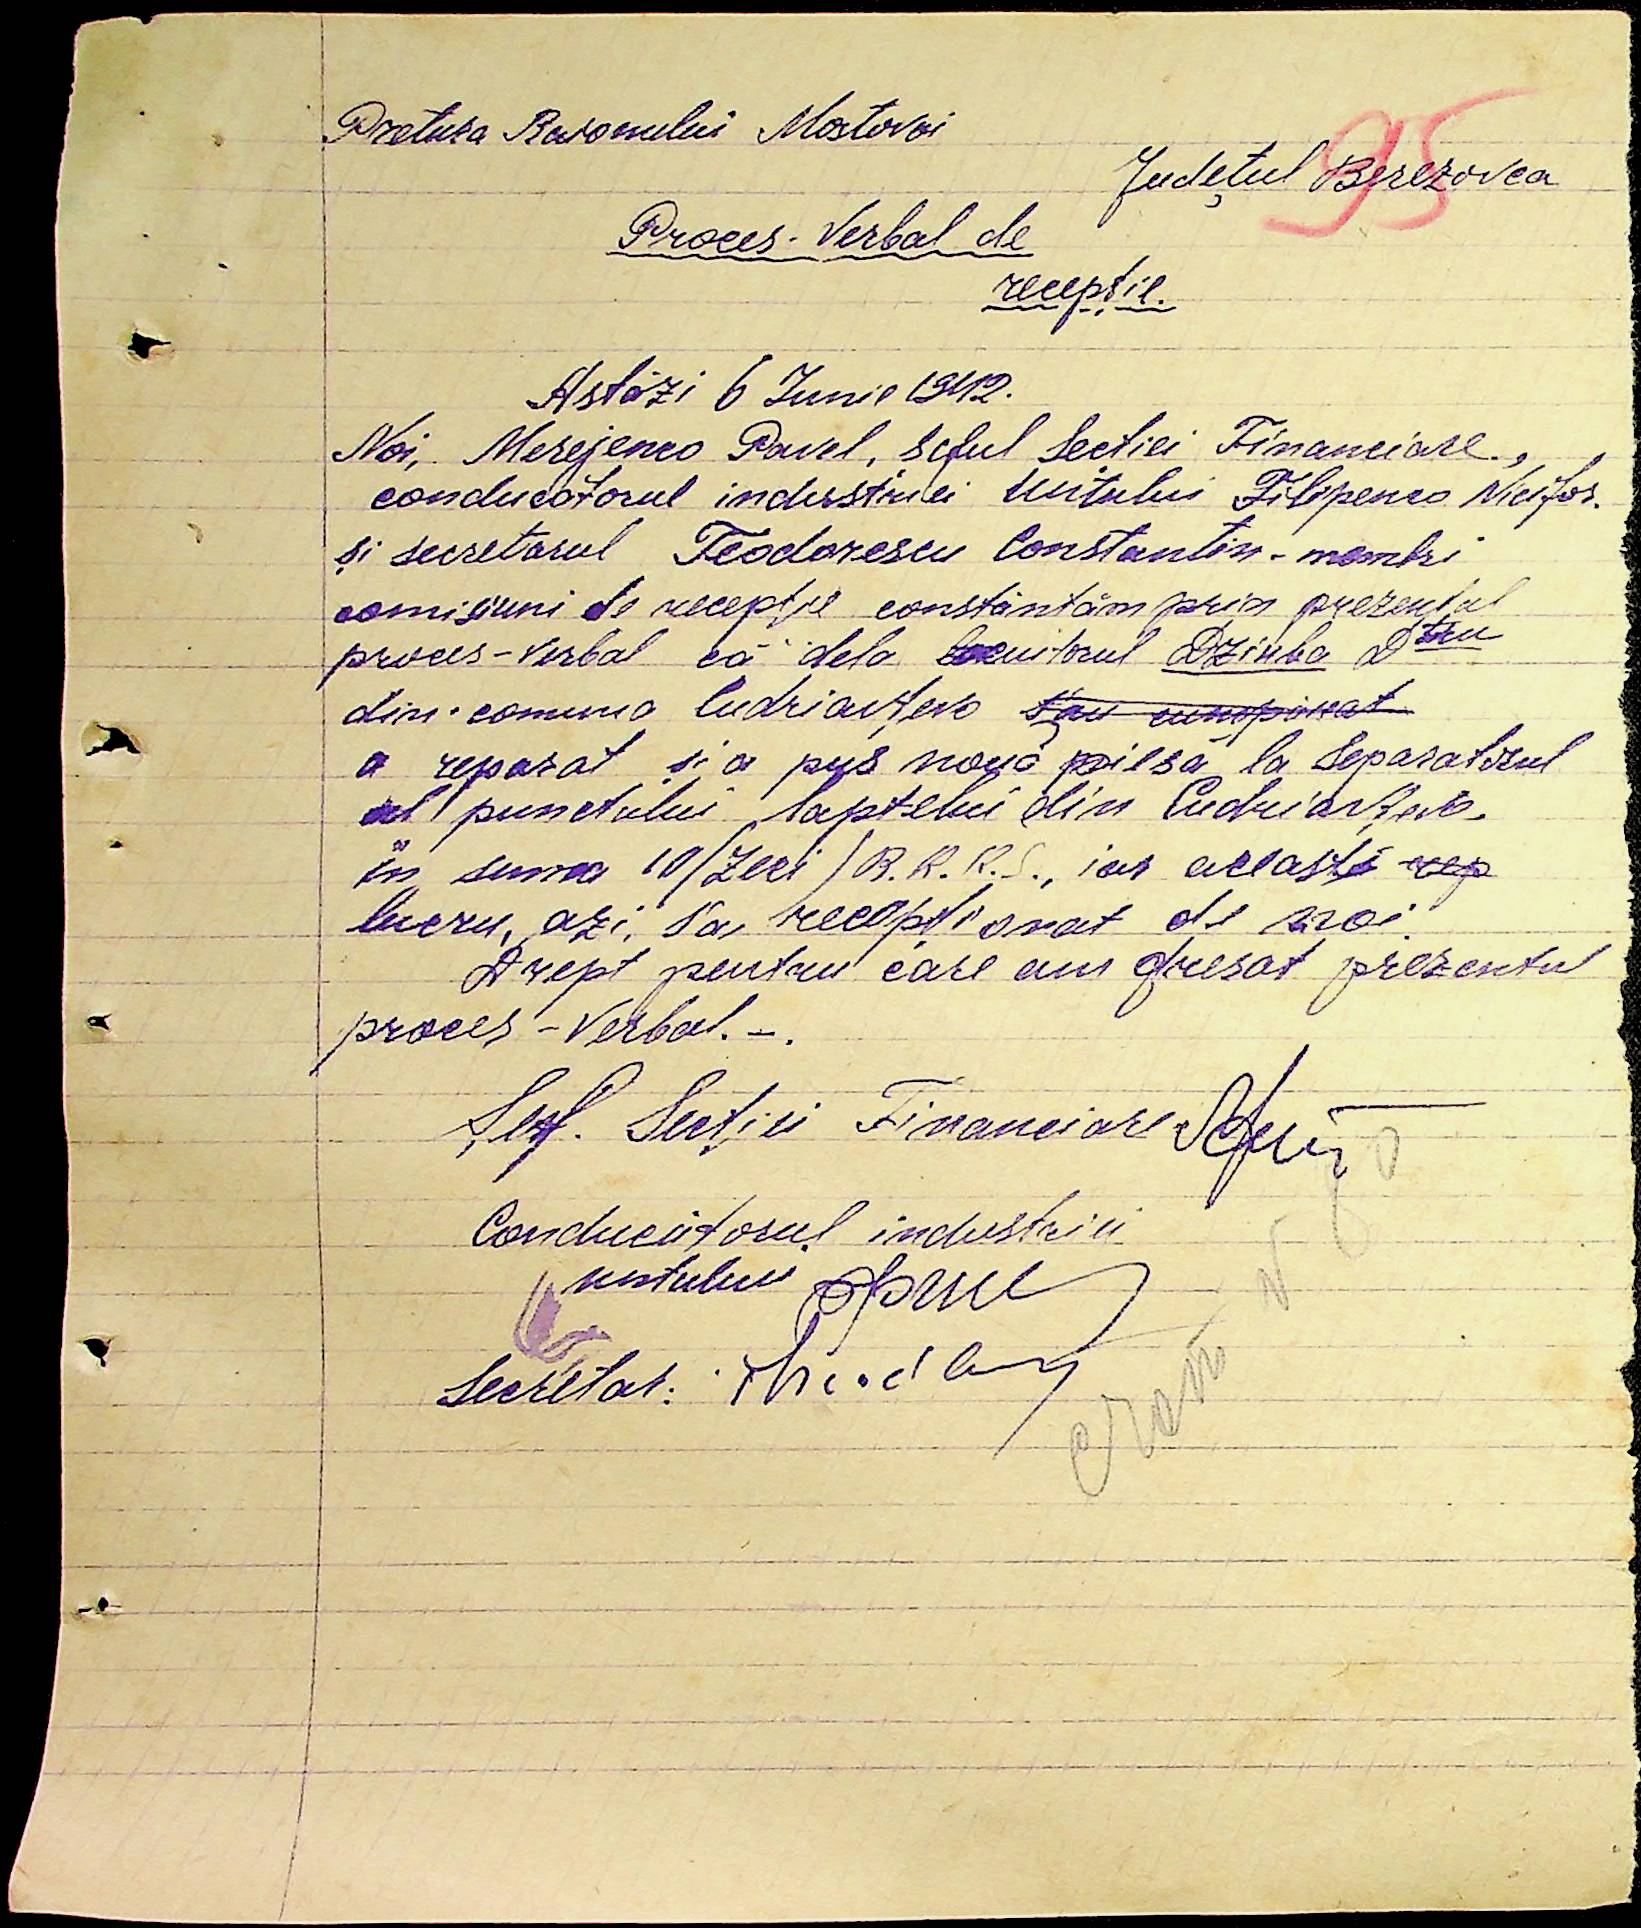 Pretura Raionului Mostovoi
95
Județul Berezovca
Proces-Verbal de
recepție.
Astăzi 6 Iunie 1942.
Noi, Merejenco Pavel, șeful Sectiei Financiare.,
conducătorul industriei Untului Filipenco Nichifor.
și secretarul Teodorescu Constantin - membri
comisiuni de recepție constântăm prin prezentul
proces-verbal că dela locuitorul Dzinba Dtru
din comuna Cudriavțevo s'au cumpărat
a reparat și a pus nouă piesă la Separatorul
al punctului laptelui din Cudriavțevo.
în suma 10/Zeci/ R.K.K.S., iar aceastĕ rep
lucru, azi, s'a recepționat de noi.
Drept pentru care am dresat prezentul
proces-Verbal. -.
Șef. Secției Financiare
Conducătorul industriei
untului
Secretar: